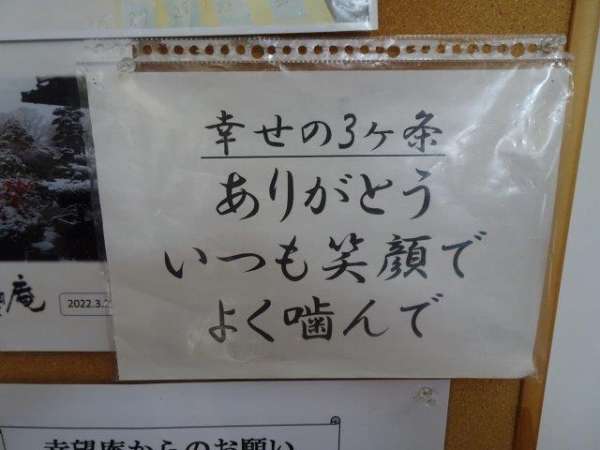 幸せの3ヶ条
ありがとう
いつも笑顔で
よく噛んで
庵
2022.3.2
幸望庵からのお願い